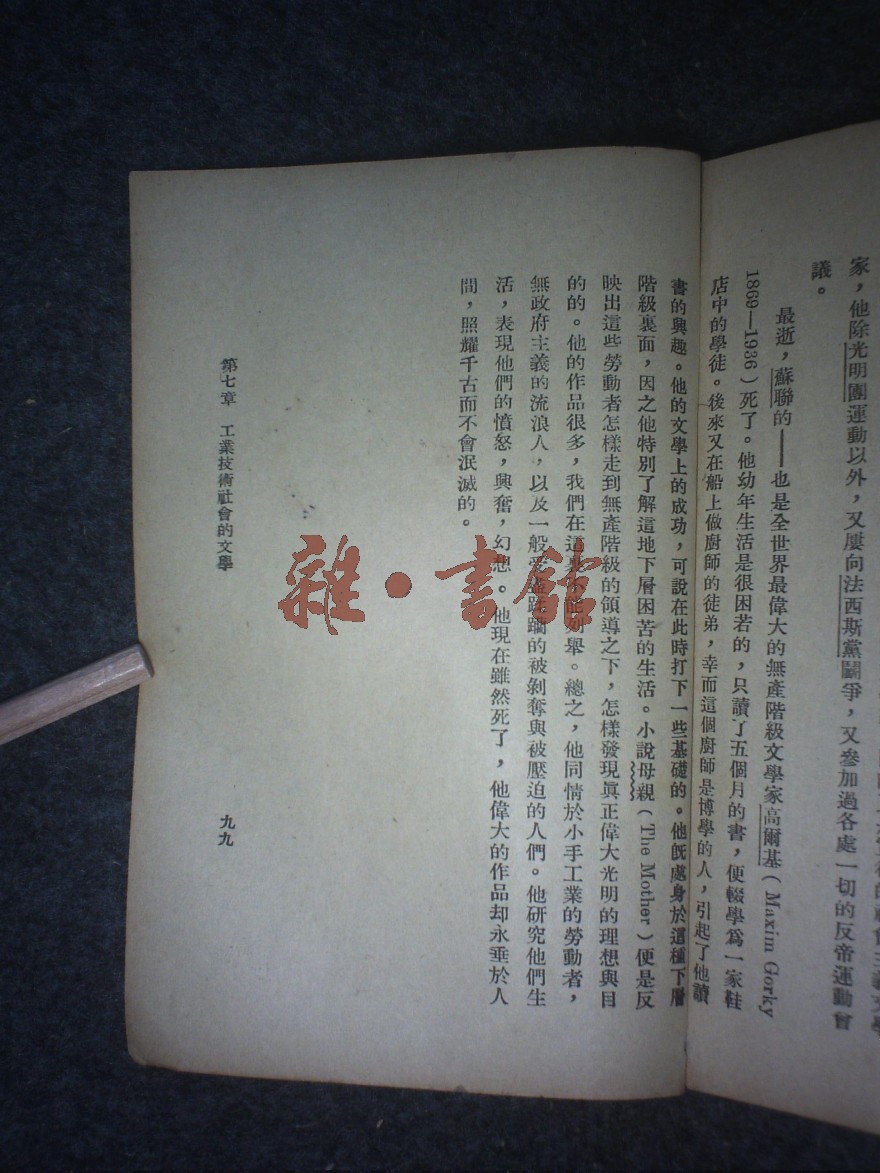 家，他除光明團運動以外，又屢向法西斯黨鬭爭，又參加過各處一切的反帝運動會
議。
最逝，蘇聯的——也是全世界最偉大的無產階級文學家高爾基（Maxim Gorky
1869—1936）死了。他幼年生活是很困若的，只讀了五個月的書，便輟學爲一家鞋
店中的學徒。後來又在船上做廚師的徒弟，幸而這個廚師是博學的人，引起了他讀
書的興趣。他的文學上的成功，可說在此時打下一些基礎的。他旣處身於這種下層
階級裏面，因之他特別了解這地下層困苦的生活。小說母親（The Mother）便是反
映出這些勞動者怎樣走到無產階級的領導之下，怎樣發現眞正偉大光明的理想與目
的的。他的作品很多，我們在這裏不能列舉。總之，他同情於小手工業的勞動者，
無政府主義的流浪人，以及一般受盡蹂躪的被剝奪與被壓迫的人們。他研究他們生
活，表現他們的憤怒，興奮，幻想。他現在雖然死了，他偉大的作品却永垂於人
間，照耀千古而不會泯滅的。
第七章　工業技術社會的文學
九九
雜·書館